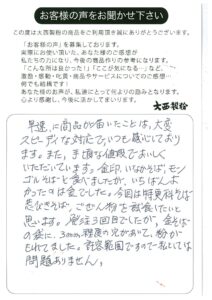 お客様の声をお聞かせ下さい
この度は大西製粉の商品をご利用頂き誠にありがとうございます。
「お客様の声」を募集しております。
実際にお使い頂いた、あなた様のご感想が
私たちの力になり、今後の商品作りの参考になります。
「こんな所は良かった!」「ここが気になる…」など、
激励・感動・叱責・商品やサービスについてのご感想…
何でも結構です!
あなた様のお声が、私達にとって何よりの励みとなります。
心より感謝し、今後に活かしてまいります。
大西製粉
早速に商品が届いたことは、大変
スピーディな対応で、いつも感心しており
ます。また、手頃な価段でおいしく
いただいています。金印、いなかそば、モン
ゴルそばと食べましたが、いちばんよ
かったのは金でした。今回は特異科そば
忍びそば、ごぜん粉を試食したいと
思います。発注3回目でしたが、金そば
の袋に、3mm程度の穴があって、粉が
もれてました。許容範囲ですので私しには
問題ありません。